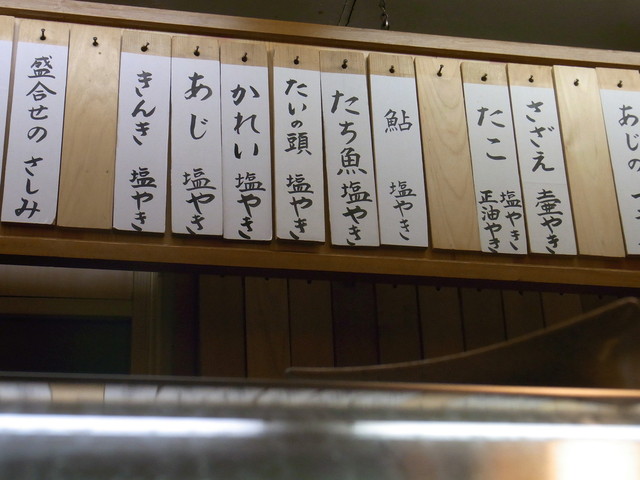 盛合せの さしみ
きんき 塩やき
あじ 塩やき
かれい 塩やき
たいの頭 塩やき
たち魚 塩やき
鮎 塩やき
たこ 塩やき 正油やき
さざえ 壷やき
あじの